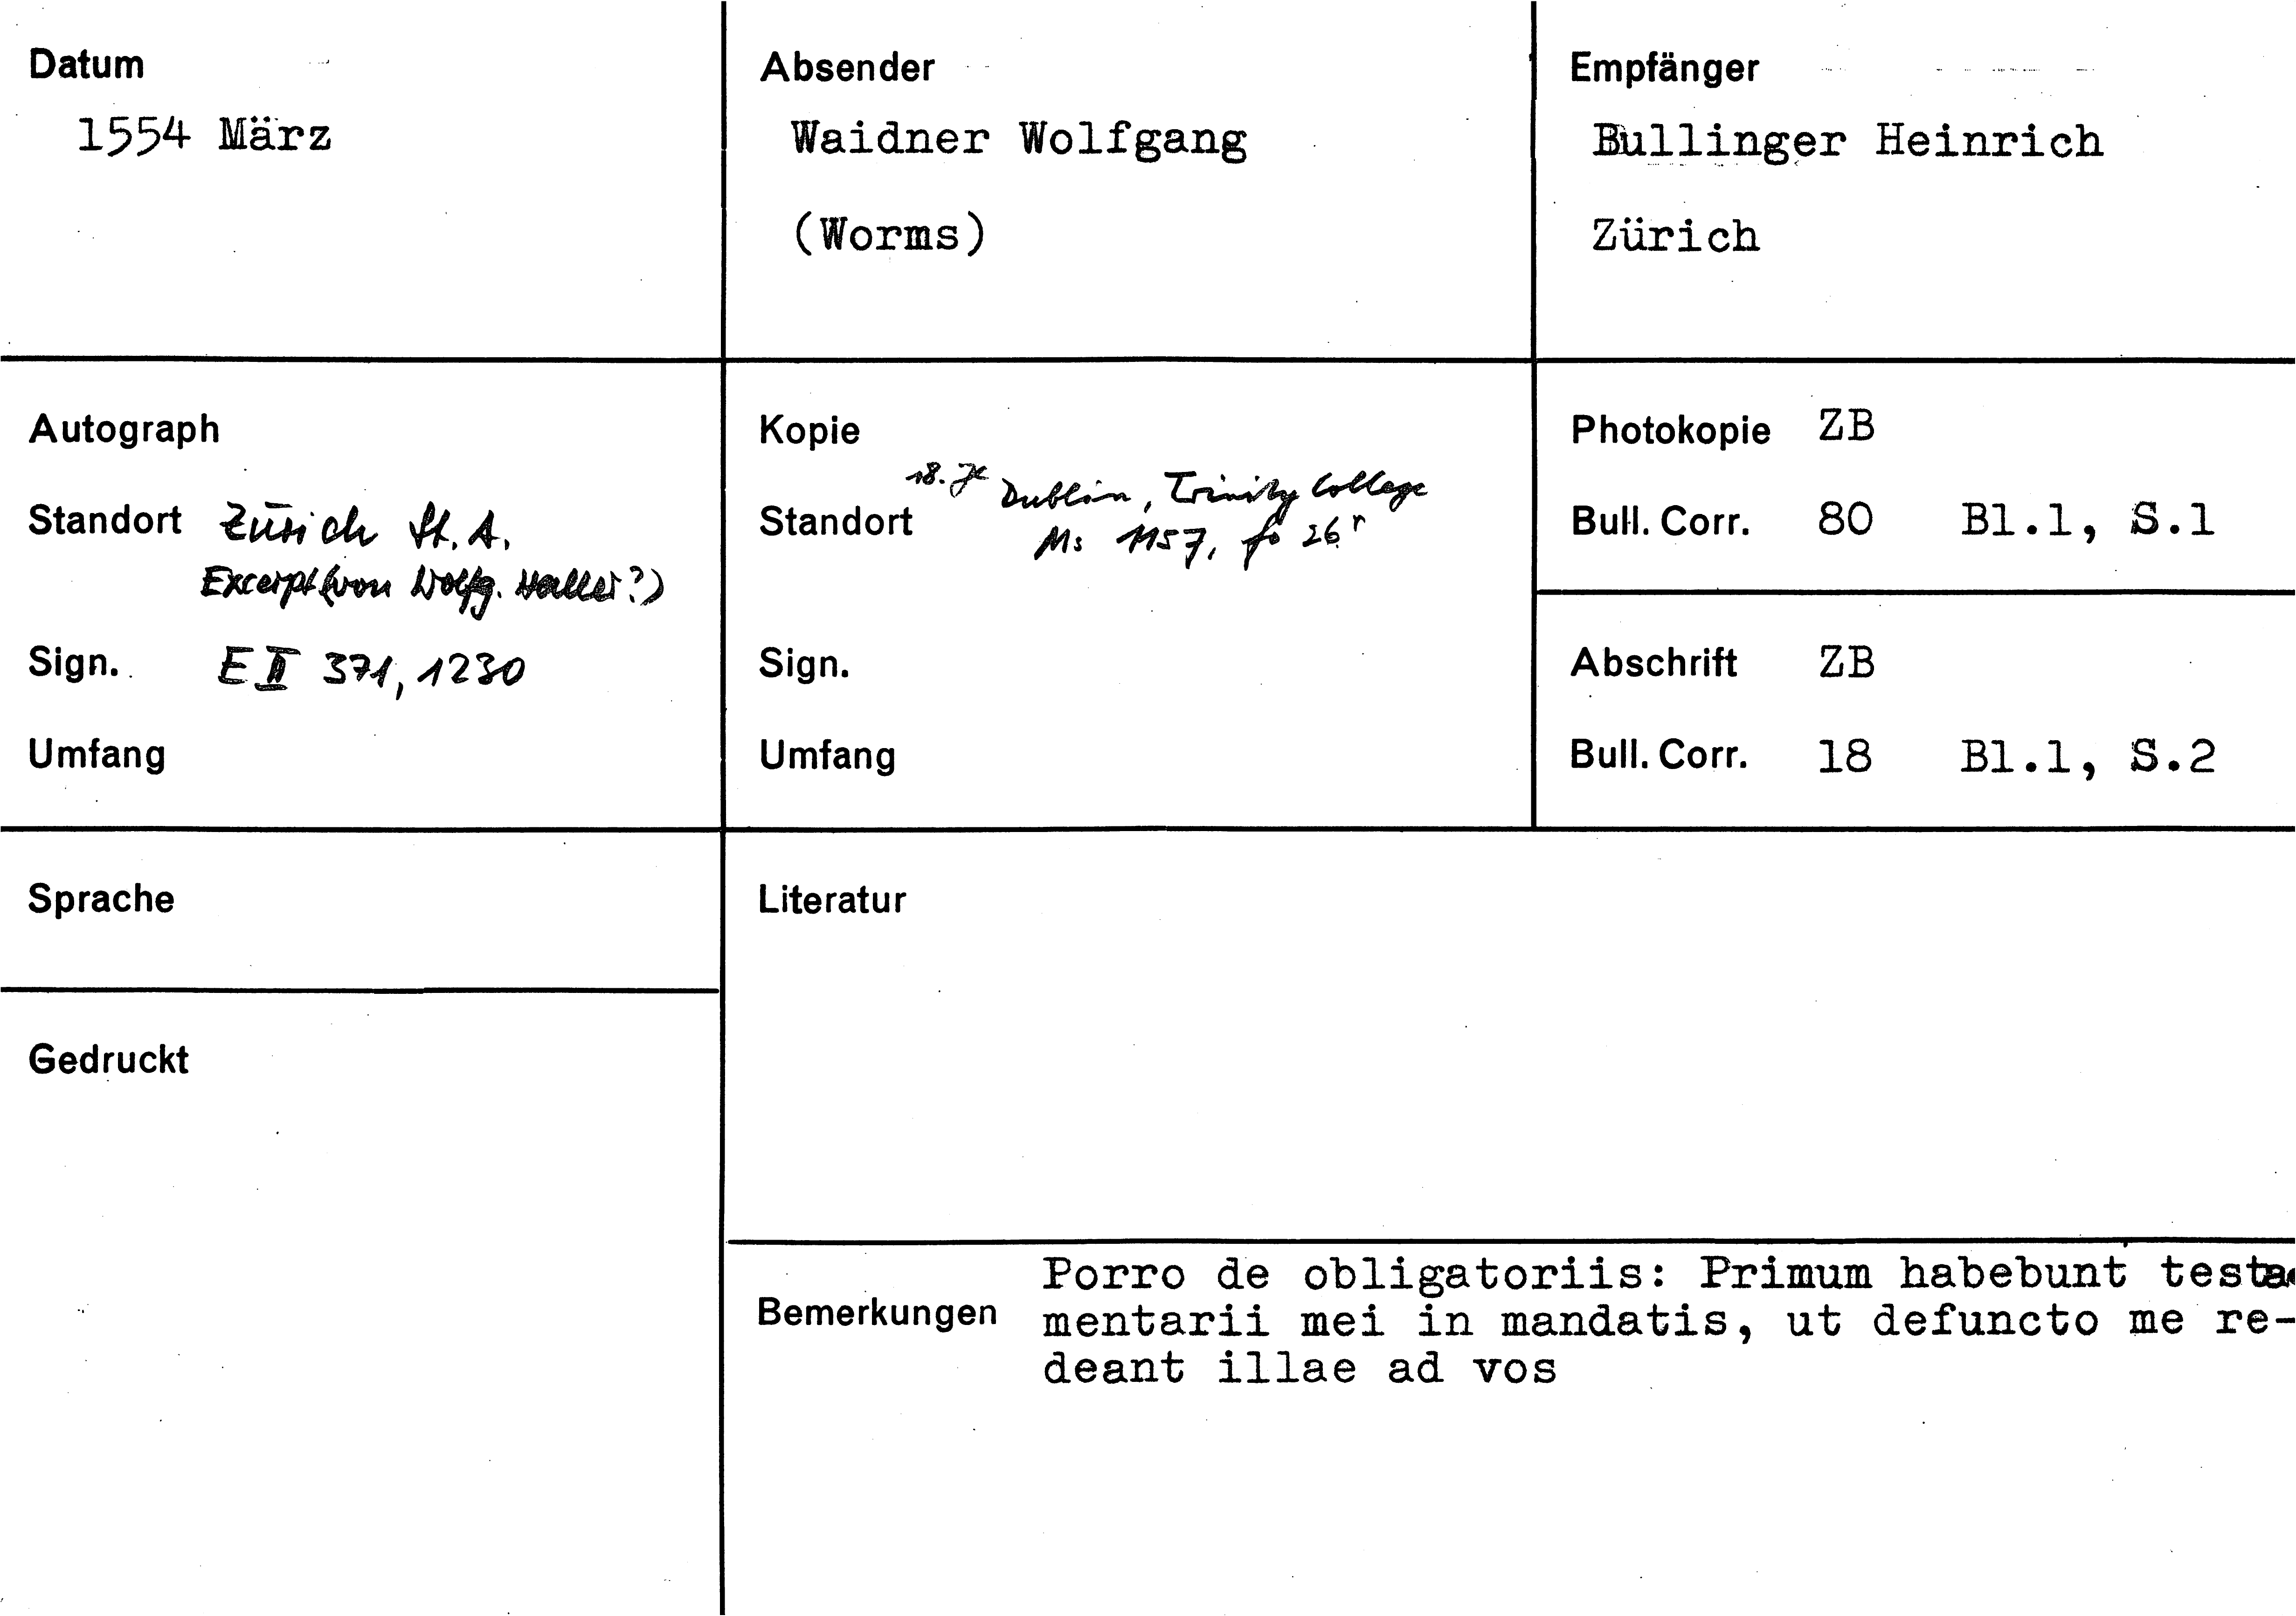 Datum
1554 März
Absender
Waidner Wolfgang
(Worms)
Empfänger
Bullinger Heinrich
Zürich
Autograph
Standort Zürich St. A.
Excerpt (von Wolfg. Haller?)
Sign. E II 371, 1230
Umfang
Kopie
18. Jh Dublin, Trinity College
Standort
Ms 1157, fo 26r
Sign.
Umfang
Photokopie ZB
Bull. Corr. 80 Bl.1, S.1
Abschrift ZB
Bull. Corr. 18 Bl.1, S.2
Sprache
Gedruckt
Literatur
Bemerkungen
Porro de obligatoriis: Primum habebunt testa-
mentarii mei in mandatis, ut defuncto me re-
deant illae ad vos